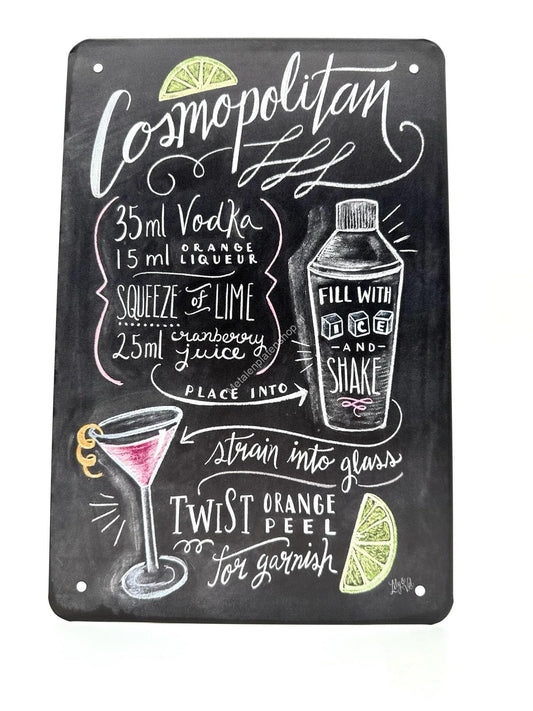 Cosmopolitan
35ml Vodka
15ml ORANGE LIQUEUR
SQUEEZE of LIME
25ml cranberry juice
PLACE INTO
FILL WITH
ICE
-AND-
SHAKE
strain into glass
TWIST ORANGE PEEL
for garnish
Metalenplatenshop
Lily & Val